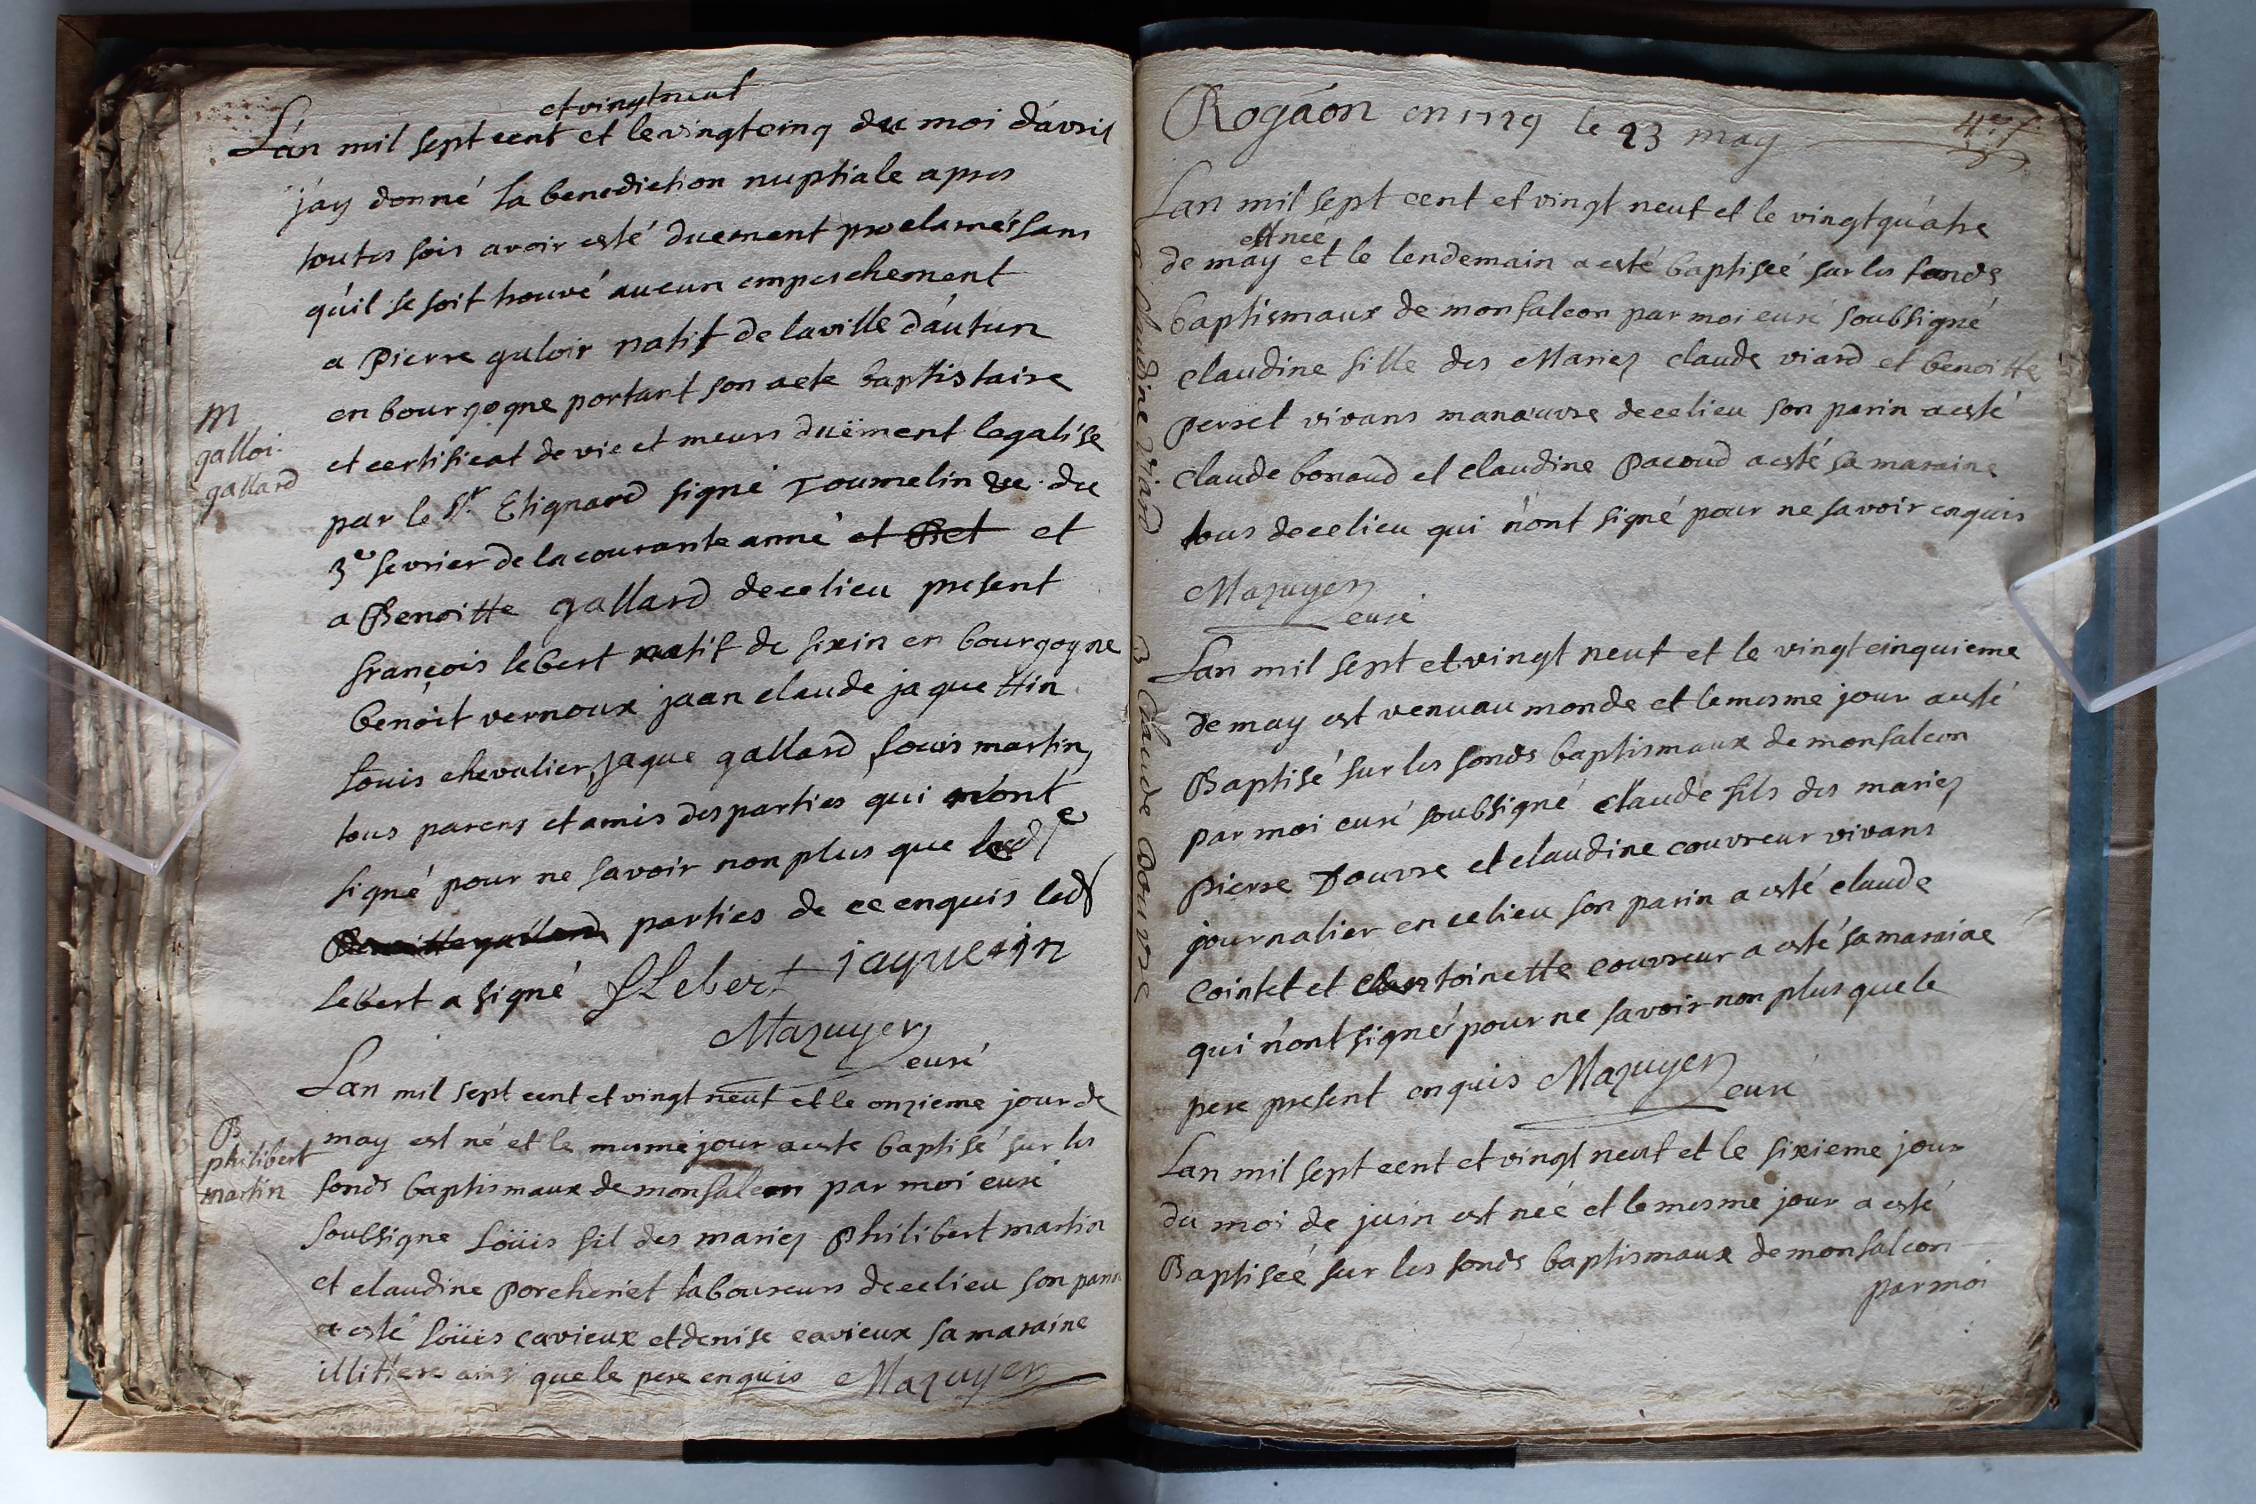 et vingt neuf
L'an mil sept cent et le vingt cinq du moi d'avril
j'ay donné la benediction nuptiale apres
toutes fois avoir esté duement proclamés sans
qu'il se soit trouvé aucun empeschement
a Pierre galoir natif de la ville d'autun
en bourgogne portant son acte baptistaire
et certificat de vie et meurs duëment legalise
par le Sr Etignard signé Toumelin du
3e fevrier de la courante anné et
a Benoitte gallard de ce lieu present
françois lebert natif de sixin en bourgogne
benoit vernoux jaan claude jaquettin
Loüis chevalier, jaque gallard, Loüis martin,
tous parens et amis des parties qui n'ont
signé pour ne savoir non plus que led
parties de ce enquis led
lebert a signé f Lebert jaquetin
Mazuyer
curé
M
galloi.
gallard
Lan mil sept cent et vingt neuf et le onzieme jour de
may est né et le mesme jour a este baptisé sur les
fonds baptismaux de monfalcon par moi curé
soubsigne Loüis fil des mariez philibert martin
et claudine porcheriet laboureurs de ce lieu son parin
a esté Loüis cavieux et denise cavieux sa maraine
illittere ainsi que le pere enquis Mazuyer
B
philibert
martin
Rogâon en 1729 le 23 may
Lan mil sept cent et vingt neuf et le vingt quatre
est née
de may et le lendemain a esté baptiseé sur les fonds
baptismaux de monfalcon par moi curé soubsigné
claudine fille des Mariez claude viard et benoitte
perret vivans manœuvre de ce lieu son parin a esté
claude bonaud et claudine Pacoud a esté sa maraine
tous de ce lieu qui n'ont signé pour ne savoir enquis
Mazuyer
curé
claudine viard
Lan mil sept et vingt neuf et le vingt cinquieme
de may est venu au monde et le mesme jour a esté
Baptisé sur les fonds baptismaux de monfalcon
par moi curé soubsigné claude fils des mariez
pierre Douvre et claudine couvreur vivans
journalier en ce lieu son parin a esté claude
Cointet et toinette couvreur a esté sa maraiae
qui n'ont signé pour ne savoir non plus que le
pere present enquis Mazuyer
curé
B Claude Douvre
Lan mil sept cent et vingt neuf et le sixieme jour
du moi de juin est neé et le mesme jour a esté
Baptiseé sur les fonds baptismaux de monfalcon
par moi